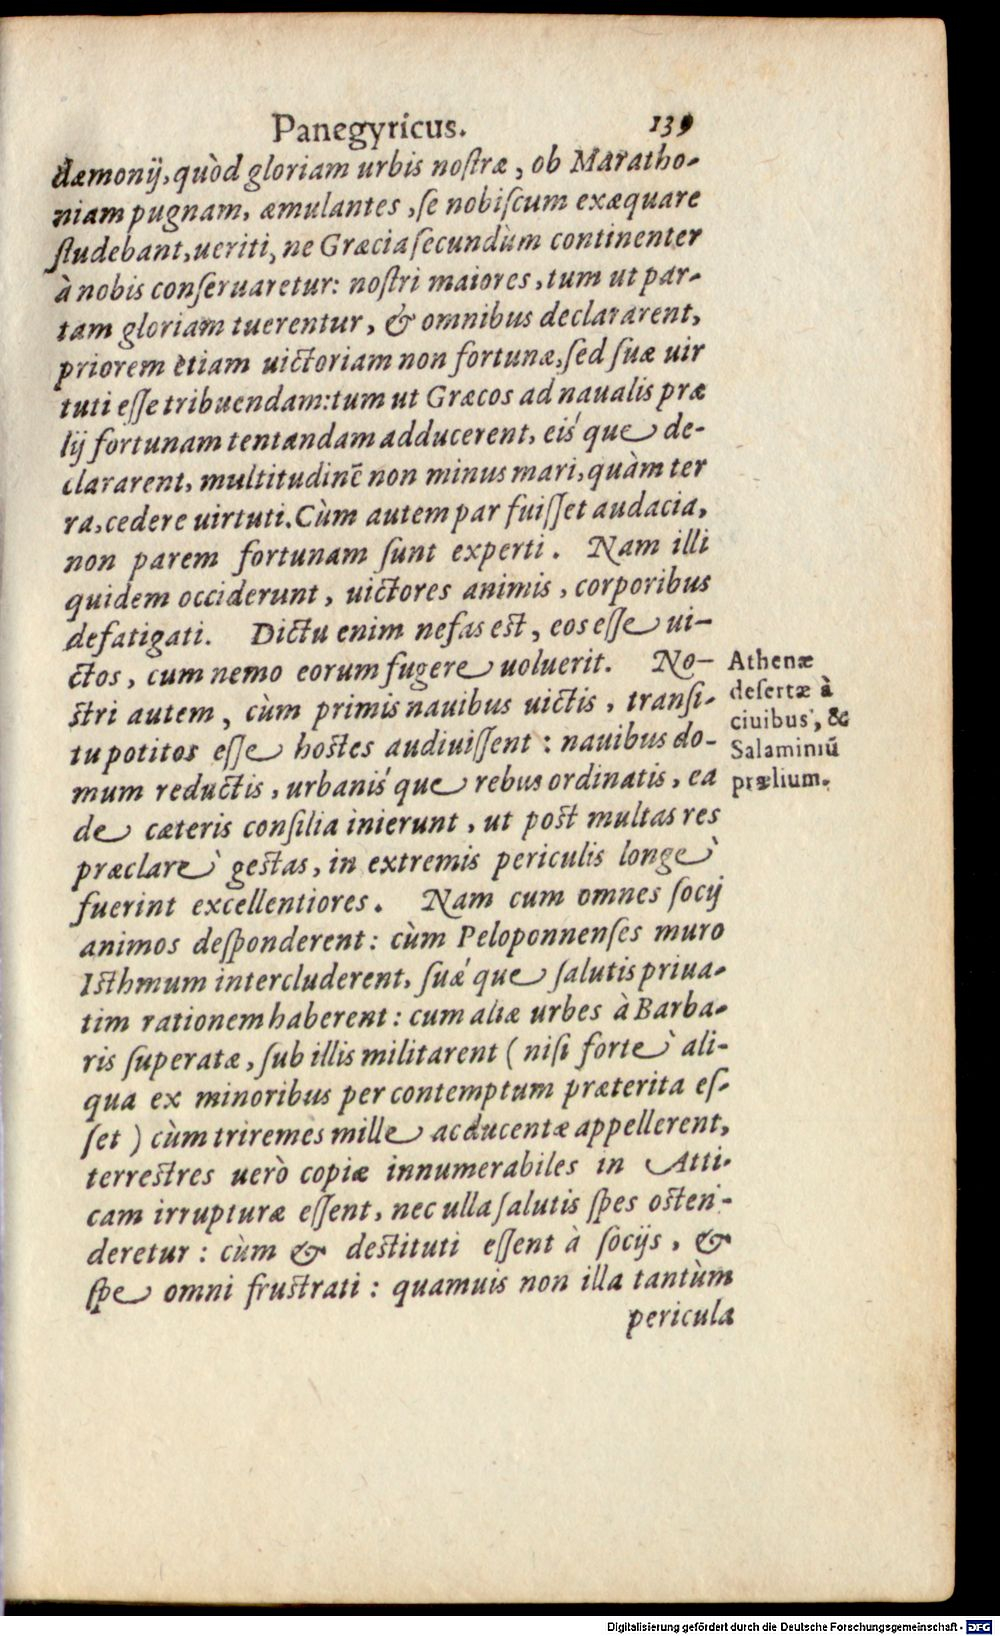 Panegyricus. 139
dæmonij, quòd gloriam urbis noſtræ, ob Maratho-
niam pugnam, æmulantes, ſe nobiſcum exæquare
ſtudebant, ueriti, ne Græcia ſecundùm continenter
à nobis conſeruaretur: noſtri maiores, tum ut par-
tam gloriam tuerentur, & omnibus declararent,
priorem etiam uictoriam non fortunæ, ſed ſuæ uir
tuti eſſe tribuendam: tum ut Græcos ad naualis præ
lij fortunam tentandam adducerent, eis´que de-
clararent, multitudinē non minus mari, quàm ter
ra, cedere uirtuti. Cùm autem par fuiſſet audacia,
non parem fortunam ſunt experti. Nam illi
quidem occiderunt, uictores animis, corporibus
defatigati. Dictu enim nefas est, eos eſſe ui-
ctos, cum nemo eorum fugere uoluerit. No-
ſtri autem, cùm primis nauibus uictis, tranſi-
tu potitos eſſe hostes audiuiſſent: nauibus do-
mum reductis, urbanis´que rebus ordinatis, ea
de cæteris conſilia inierunt, ut post multas res
præclarè gestas, in extremis periculis longè
fuerint excellentiores. Nam cum omnes ſocij
animos deſponderent: cùm Peloponnenſes muro
Isthmum intercluderent, ſuæ´que ſalutis priua-
tim rationem haberent: cum aliæ urbes à Barba-
ris ſuperatæ, ſub illis militarent (niſi fortè ali-
qua ex minoribus per contemptum præterita eſ-
ſet) cùm triremes mille ac ducentæ appellerent,
terrestres uerò copiæ innumerabiles in Atti-
cam irrupturæ eſſent, nec ulla ſalutis ſpes osten-
deretur: cùm & destituti eſſent à ſocijs, &
ſpe omni frustrati: quamuis non illa tantùm
pericula
Athenæ
deſertæ à
ciuibus, &
Salaminiū
prælium.
Digitalisierung gefördert durch die Deutsche Forschungsgemeinschaft - DFG